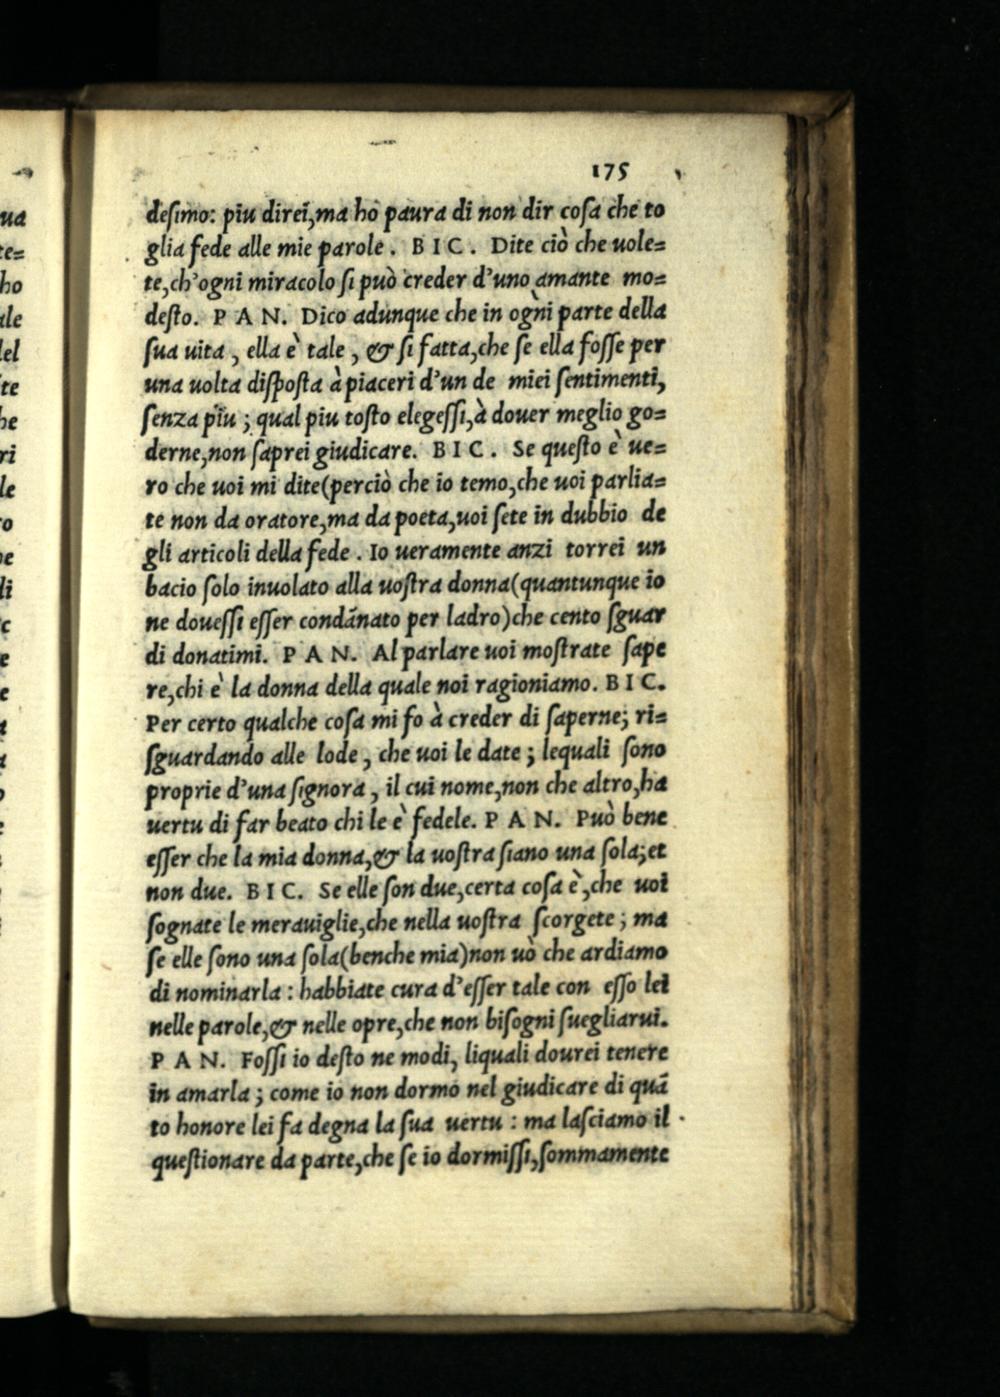 175
desimo: piu direi, ma ho paura di non dir cosa che to
glia fede alle mie parole. BIC. Dite ciò che uole=
te, ch'ogni miracolo si può creder d'uno amante mo=
desto. PAN. Dico adunque che in ogni parte della
sua uita, ella è tale, & si fatta, che se ella fosse per
una uolta disposta à piaceri d'un de miei sentimenti,
senza piu; qual piu tosto elegessi, à douer meglio go=
derne, non saprei giudicare. BIC. Se questo è ue=
ro che uoi mi dite (perciò che io temo, che uoi parlia=
te non da oratore, ma da poeta, uoi sete in dubbio de
gli articoli della fede. Io ueramente anzi torrei un
bacio solo inuolato alla uostra donna (quantunque io
ne douessi esser condãnato per ladro) che cento sguar
di donatimi. PAN. Al parlare uoi mostrate sape
re, chi è la donna della quale noi ragioniamo. BIC.
Per certo qualche cosa mi fo à creder di saperne; ri=
sguardando alle lode, che uoi le date; lequali sono
proprie d'una signora, il cui nome, non che altro, ha
uertu di far beato chi le è fedele. PAN. Può bene
esser che la mia donna, & la uostra siano una sola; et
non due. BIC. Se elle son due, certa cosa è, che uoi
sognate le merauiglie, che nella uostra scorgete; ma
se elle sono una sola (benche mia) non uò che ardiamo
di nominarla: habbiate cura d'esser tale con esso lei
nelle parole, & nelle opre, che non bisogni suegliarui.
PAN. Fossi io desto ne modi, liquali dourei tenere
in amarla; come io non dormo nel giudicare di quã
to honore lei fa degna la sua uertu: ma lasciamo il
questionare da parte, che se io dormissi, sommamente